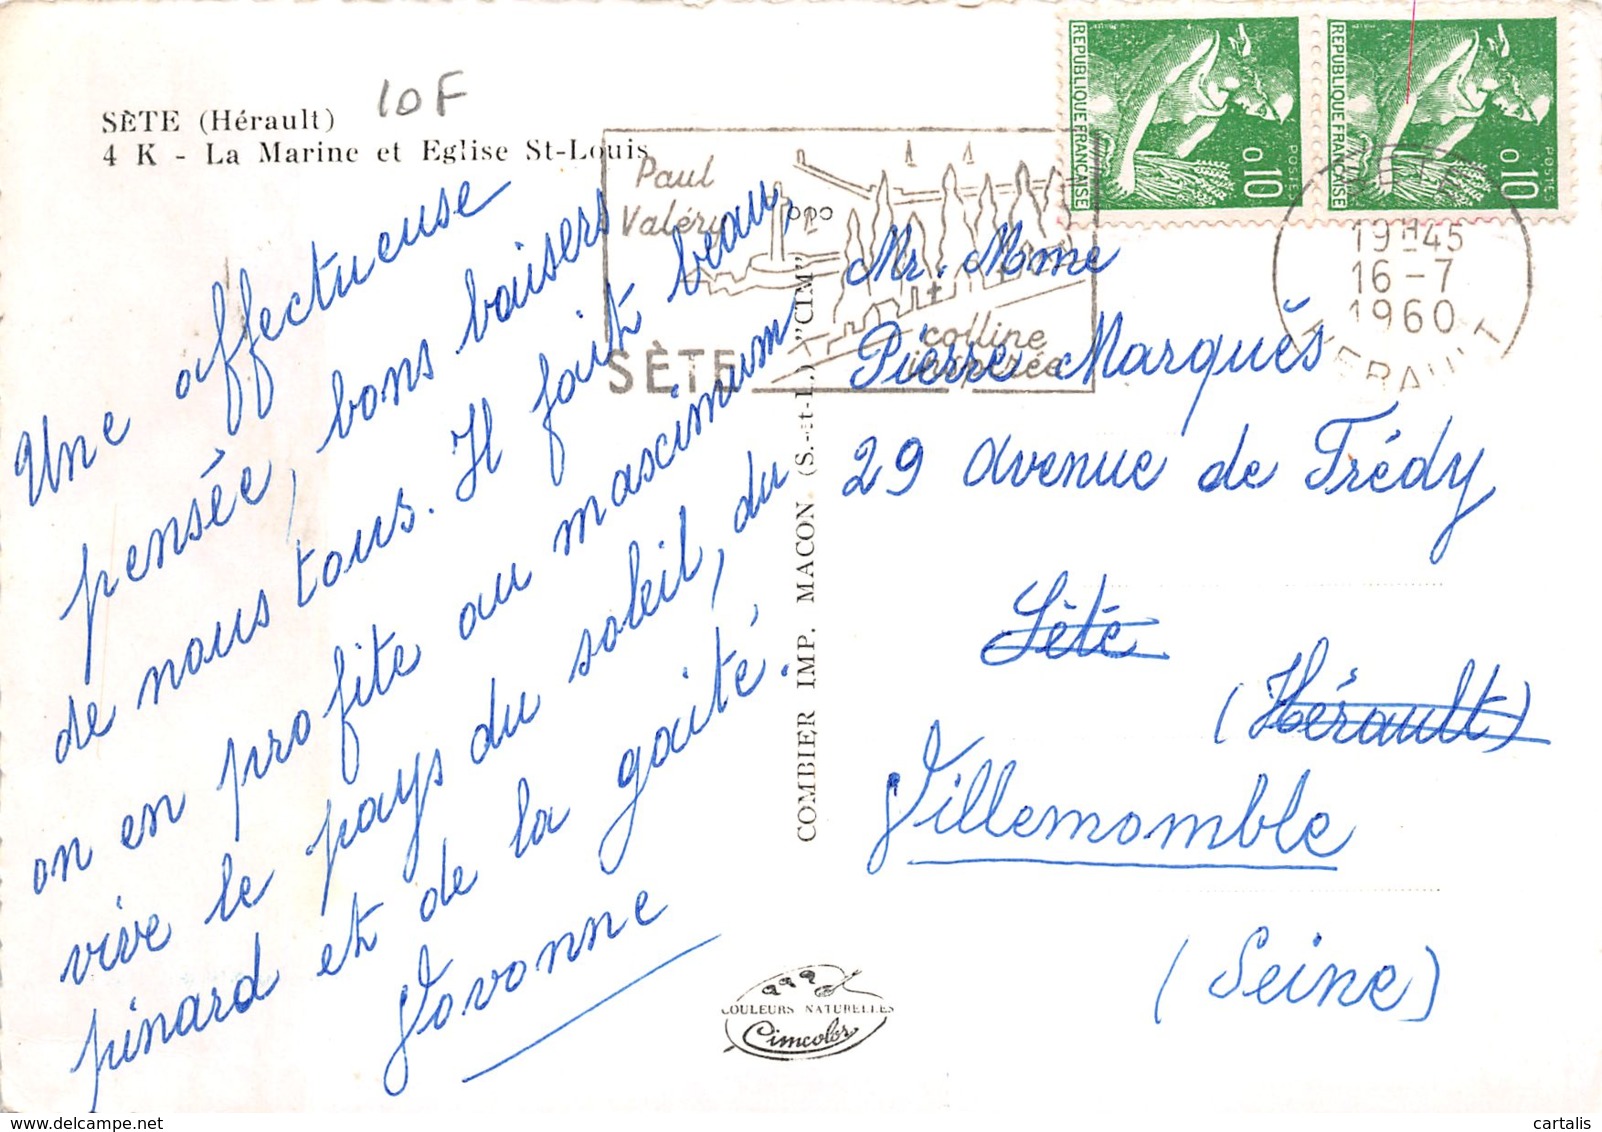 10F
SÈTE (Hérault)
4 K - La Marine et Eglise St-Louis
Une affectueuse
pensée, bons baisers
de nous tous. Il fait beau,
on en profite au mascimum
vive le pays du soleil, du
pinard et de la gaité.
Vovonne
COMBIER IMP. MACON (S.-et-L.) "CIM"
COULEURS NATURELLES
Cimcolor
Paul
Valéry
colline
inspirée
SÈTE
REPUBLIQUE FRANÇAISE
0,10
POSTES
REPUBLIQUE FRANÇAISE
0,10
POSTES
SETE
19H45
16-7
1960
HERAULT
Mr. Mme
Pierre Marquès
29 Avenue de Frédy
Sète
(Hérault)
Villemomble
(Seine)
cartalis
delcampe.net